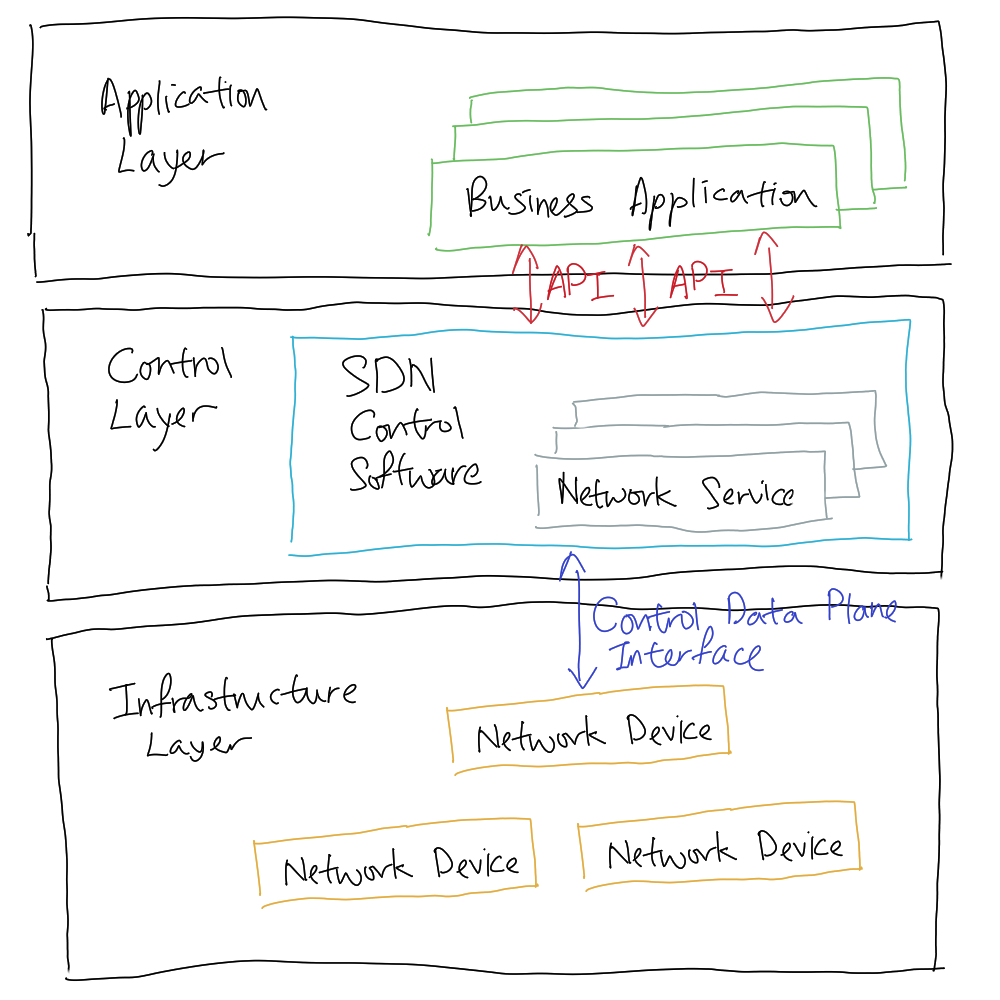 Application
Layer
Business Application
API API
Control
Layer
SDN
Control
Software
Network Service
Control Data Plane
Interface
Infrastructure
Layer
Network Device
Network Device
Network Device